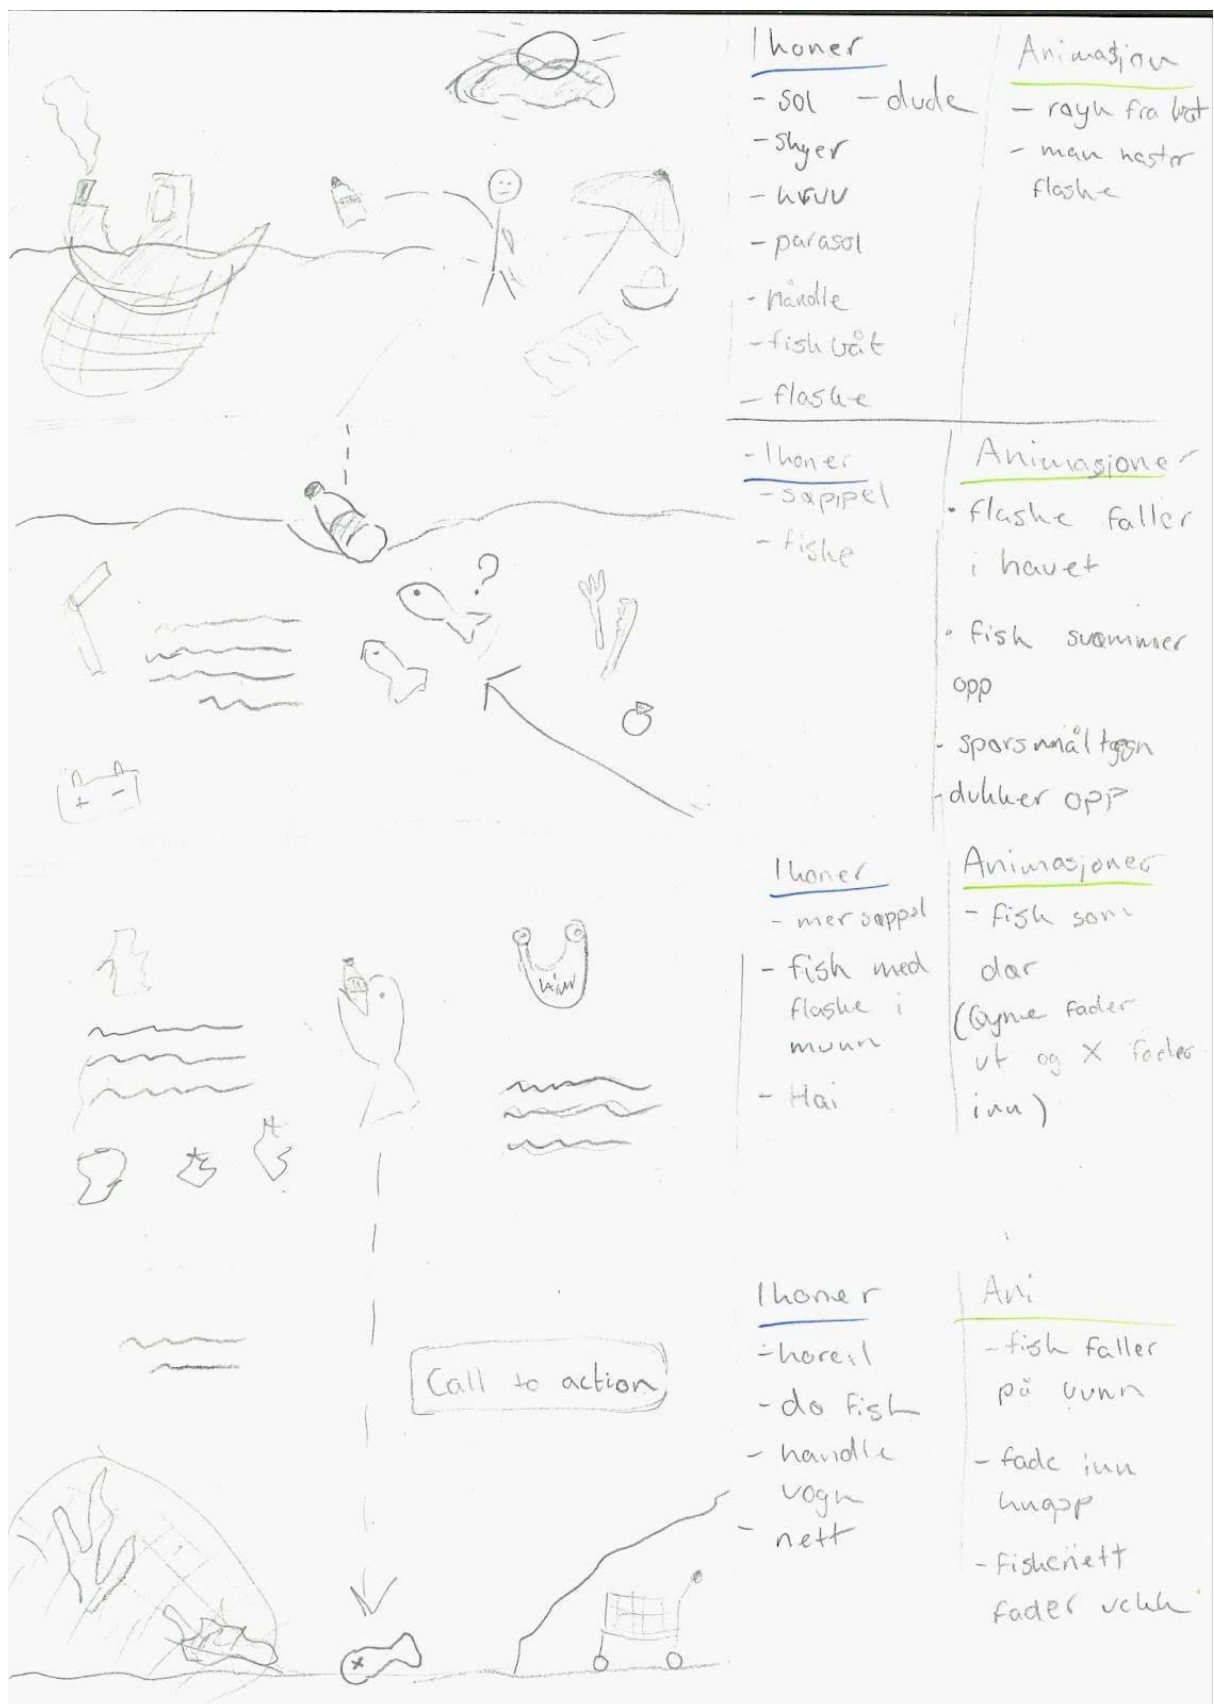 Ikoner
- sol - dude
- skyer
- kurv
- parasol
- håndkle
- fisk båt
- flaske
Animasjon
- røyk fra båt
- man kaster
flaske
- Ikoner
- søppel
- fiske
Animasjoner
• flaske faller
i havet
• fisk svømmer
opp
- spørsmål tegn
- dukker opp
?
+ -
Ikoner
- mer søppel
- fisk med
flaske i
munn
- Hai
Animasjoner
- fisk som
dør
(Øyne fader
ut og X fader
inn)
Ikoner
- korall
- dø fisk
- handle
vogn
- nett
Ani
- fisk faller
på bunn
- fade inn
knapp
- fiskenett
fader vekk
Call to action